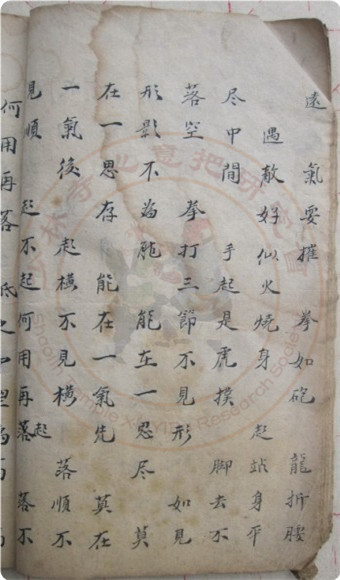 遠氣要摧 拳如砲 龍折腰
遇敵好似火燒身 起站身平
尽中間 手起是虎撲 脚去不
落空 拳打三節不見形 如見
形影不為能 能在一思尽 莫
在一思存 能在一氣先 莫在
一氣後 起橫不見橫 落順不
見順 起不起何用再落起 落不
何用再落 低之